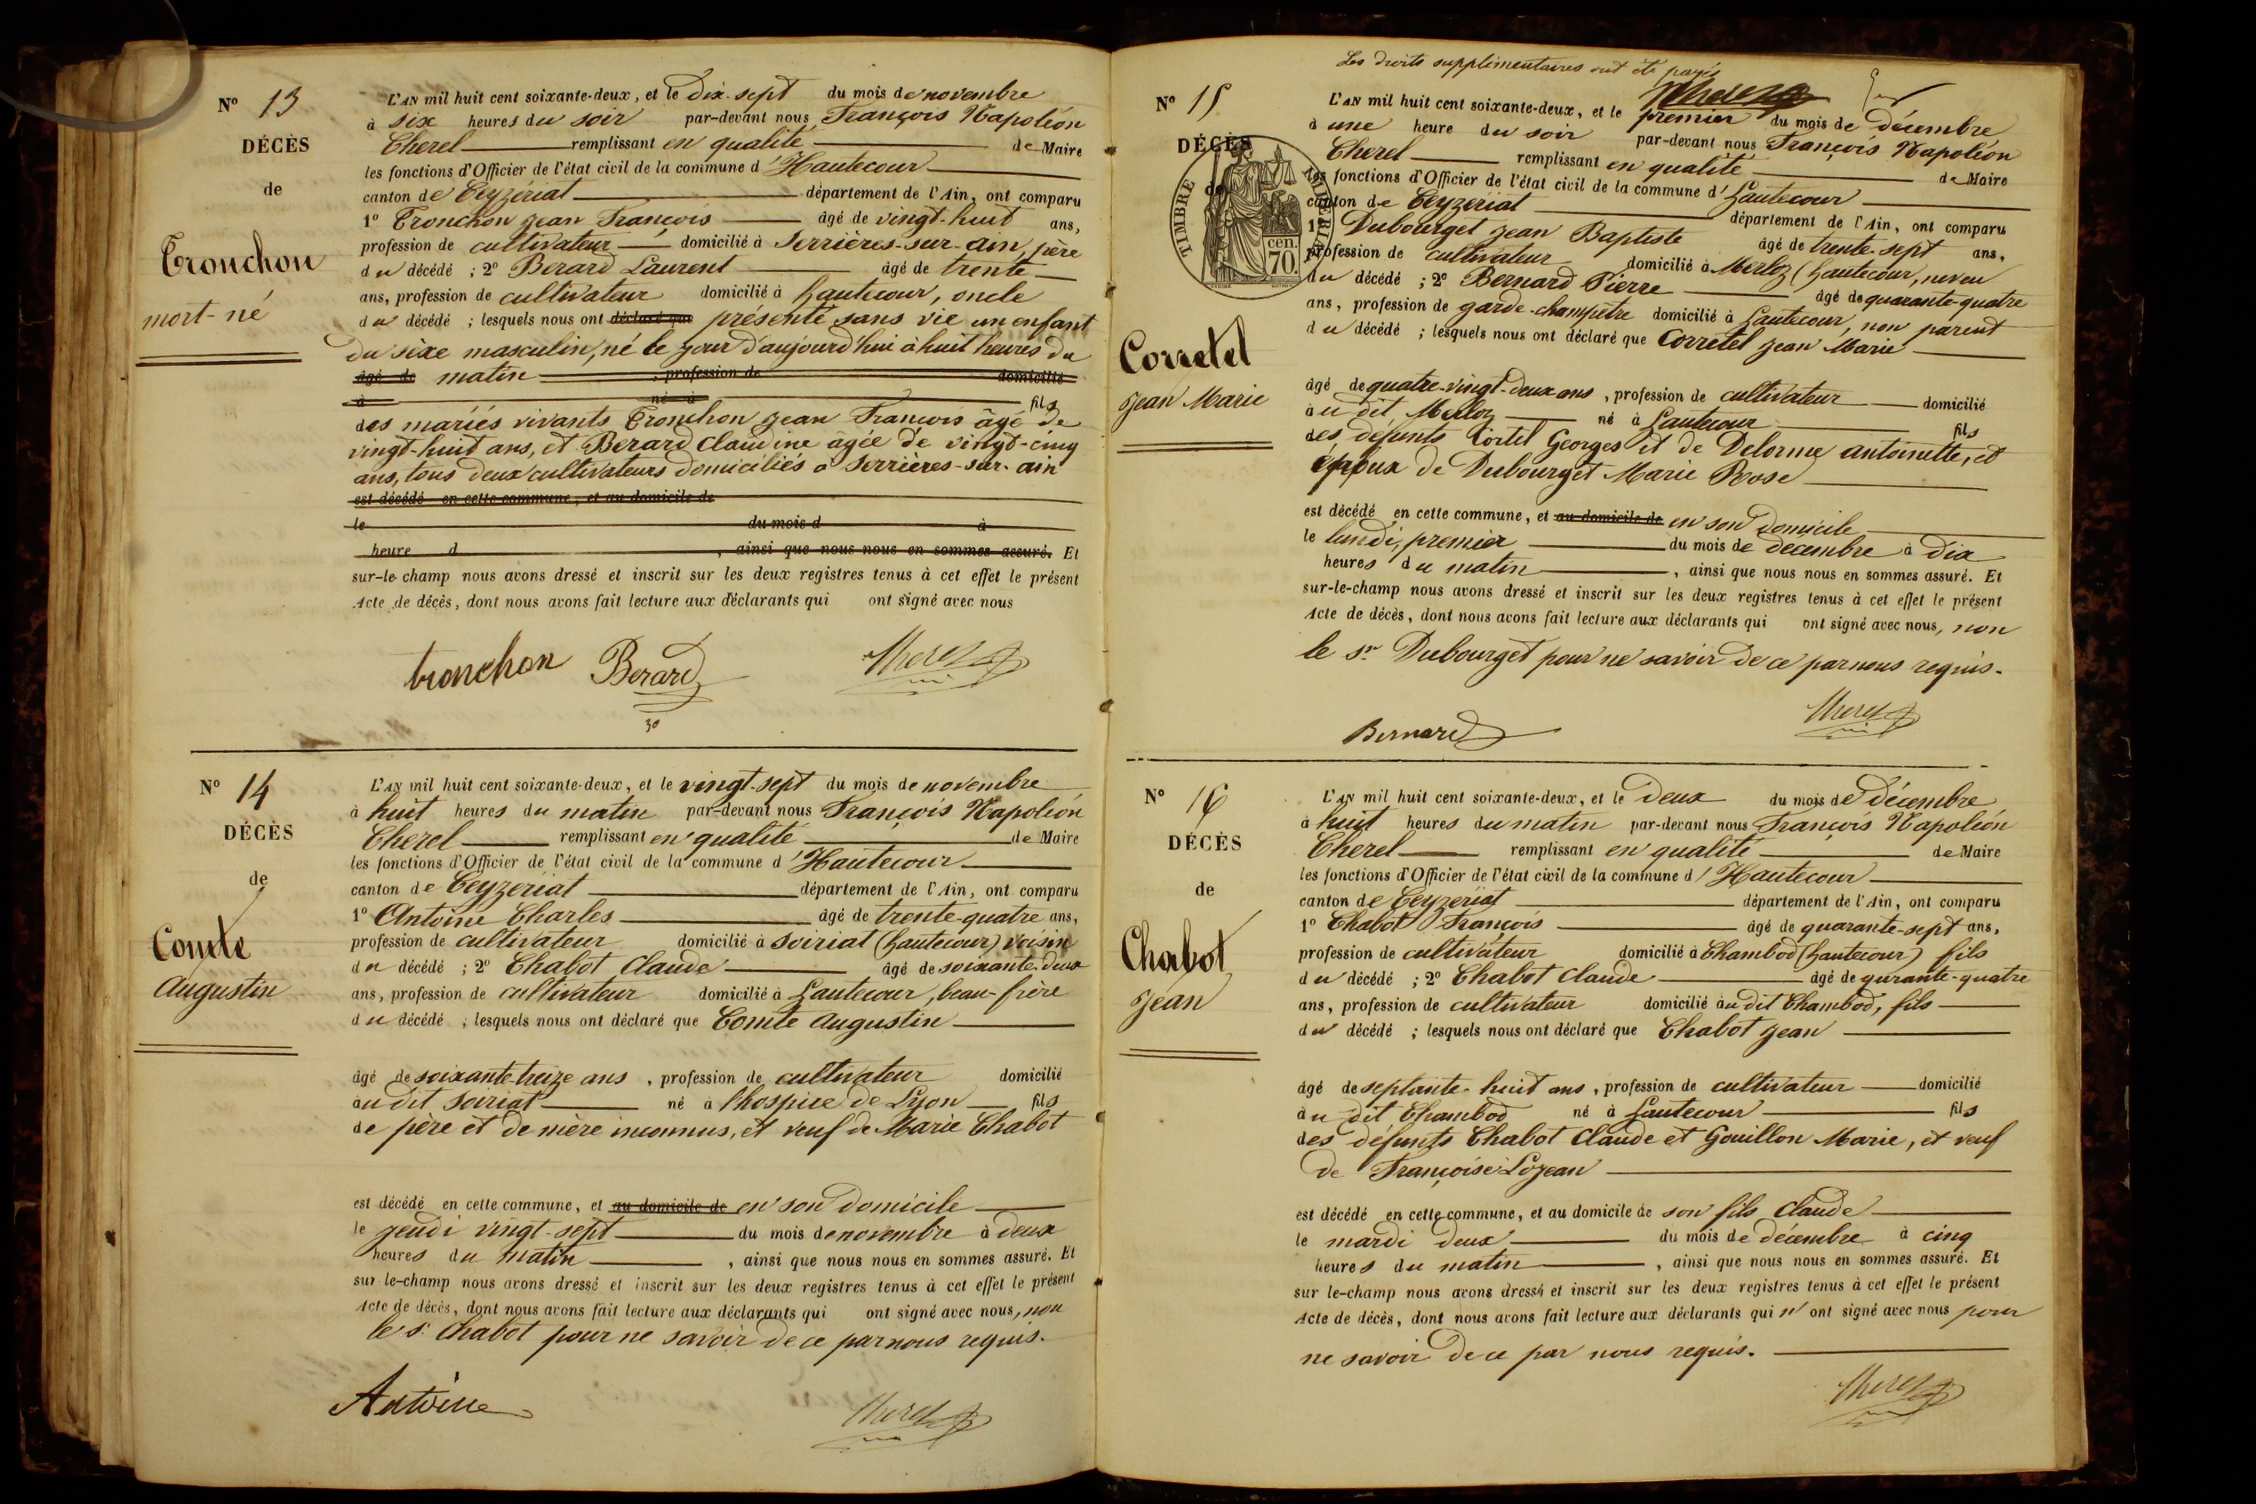 N° 13
DÉCÈS
de
Tronchon
mort-né
L'AN mil huit cent soixante-deux, et le dix-sept du mois de novembre
à six heures du soir par-devant nous François Napoléon
Cherel remplissant en qualité de Maire
les fonctions d'Officier de l'état civil de la commune d'Hautecour
canton de Ceyzériat département de l'Ain, ont comparu
1° Tronchon Jean François âgé de vingt-huit ans,
profession de cultivateur domicilié à Serrières-sur-ain, père
du décédé ; 2° Berard Laurent âgé de trente
ans, profession de cultivateur domicilié à hautecour, oncle
du décédé ; lesquels nous ont déclaré que présenté sans vie un enfant
du sexe masculin, né le jour d'aujourd'hui à huit heures du
âgé de matin , profession de domicilié
à né à fils
des mariés vivants Tronchon Jean François âgé de
vingt-huit ans, et Berard Claudine agée de vingt-cinq
ans, tous deux cultivateurs domiciliés à Serrières-sur-ain
est décédé en cette commune, et au domicile de
le du mois d à
heure d , ainsi que nous nous en sommes assuré. Et
sur-le-champ nous avons dressé et inscrit sur les deux registres tenus à cet effet le présent
Acte de décès, dont nous avons fait lecture aux déclarants qui ont signé avec nous
tronchon Berard Cherel
N° 14
DÉCÈS
de
Comte
Augustin
L'AN mil huit cent soixante-deux, et le vingt-sept du mois de novembre
à huit heures du matin par-devant nous François Napoléon
Cherel remplissant en qualité de Maire
les fonctions d'Officier de l'état civil de la commune d'Hautecour
canton de Ceyzériat département de l'Ain, ont comparu
1° Antoine Charles âgé de trente-quatre ans,
profession de cultivateur domicilié à Soiriat (hautecour) voisin
du décédé ; 2° Chabot Claude âgé de soixante-deux
ans, profession de cultivateur domicilié à hautecour, beau-frère
du décédé ; lesquels nous ont déclaré que Comte Augustin
âgé de soixante-treize ans, profession de cultivateur domicilié
au dit Soiriat né à l'hospice de Lyon fils
de père et de mère inconnus, et veuf de Marie Chabot
est décédé en cette commune, et au domicile de en son domicile
le jeudi vingt-sept du mois de novembre à deux
heures du matin , ainsi que nous nous en sommes assuré. Et
sur-le-champ nous avons dressé et inscrit sur les deux registres tenus à cet effet le présent
Acte de décès, dont nous avons fait lecture aux déclarants qui ont signé avec nous, non
le s. Chabot pour ne savoir de ce par nous requis.
Antoine Cherel
Les droits supplémentaires ont été payés
Cherel
N° 15
DÉCÈS
de
TIMBRE IMPÉRIAL
70 cen.
Corretel
Jean Marie
L'AN mil huit cent soixante-deux, et le premier du mois de décembre
à une heure du soir par-devant nous François Napoléon
Cherel remplissant en qualité de Maire
les fonctions d'Officier de l'état civil de la commune d'hautecour
canton de Ceyzériat département de l'Ain, ont comparu
1° Dubourget Jean Baptiste âgé de trente-sept ans,
profession de cultivateur domicilié à Merloz (hautecour, neveu
du décédé ; 2° Bernard Pierre âgé de quarante-quatre
ans, profession de garde-champêtre domicilié à hautecour, non parent
du décédé ; lesquels nous ont déclaré que Corretel Jean Marie
âgé de quatre-vingt-deux ans, profession de cultivateur domicilié
au dit Merloz né à hautecour fils
des défunts Cortel Georges et de Delorme antoinette, et
époux de Dubourget Marie Rose
est décédé en cette commune, et au domicile de en son domicile
le lundi, premier du mois de décembre à dix
heures du matin , ainsi que nous nous en sommes assuré. Et
sur-le-champ nous avons dressé et inscrit sur les deux registres tenus à cet effet le présent
Acte de décès, dont nous avons fait lecture aux déclarants qui ont signé avec nous, non
le Sr Dubourget pour ne savoir de ce par nous requis.
Bernard Cherel
N° 16
DÉCÈS
de
Chabot
Jean
L'AN mil huit cent soixante-deux, et le deux du mois de décembre
à huit heures du matin par-devant nous François Napoléon
Cherel remplissant en qualité de Maire
les fonctions d'Officier de l'état civil de la commune d'Hautecour
canton de Ceyzériat département de l'Ain, ont comparu
1° Chabot François âgé de quarante-sept ans,
profession de cultivateur domicilié à Chambod (hautecour) fils
du décédé ; 2° Chabot Claude âgé de qurante-quatre
ans, profession de cultivateur domicilié au dit Chambod, fils
du décédé ; lesquels nous ont déclaré que Chabot Jean
âgé de septante-huit ans, profession de cultivateur domicilié
au dit Chambod né à hautecour fils
des défunts Chabot Claude et Gouillon Marie, et veuf
de Françoise Lozean
est décédé en cette commune, et au domicile de son fils Claude
le mardi deux du mois de décembre à cinq
heures du matin , ainsi que nous nous en sommes assuré. Et
sur le-champ nous avons dressé et inscrit sur les deux registres tenus à cet effet le présent
Acte de décès, dont nous avons fait lecture aux déclarants qui n'ont signé avec nous pour
ne savoir de ce par nous requis.
Cherel